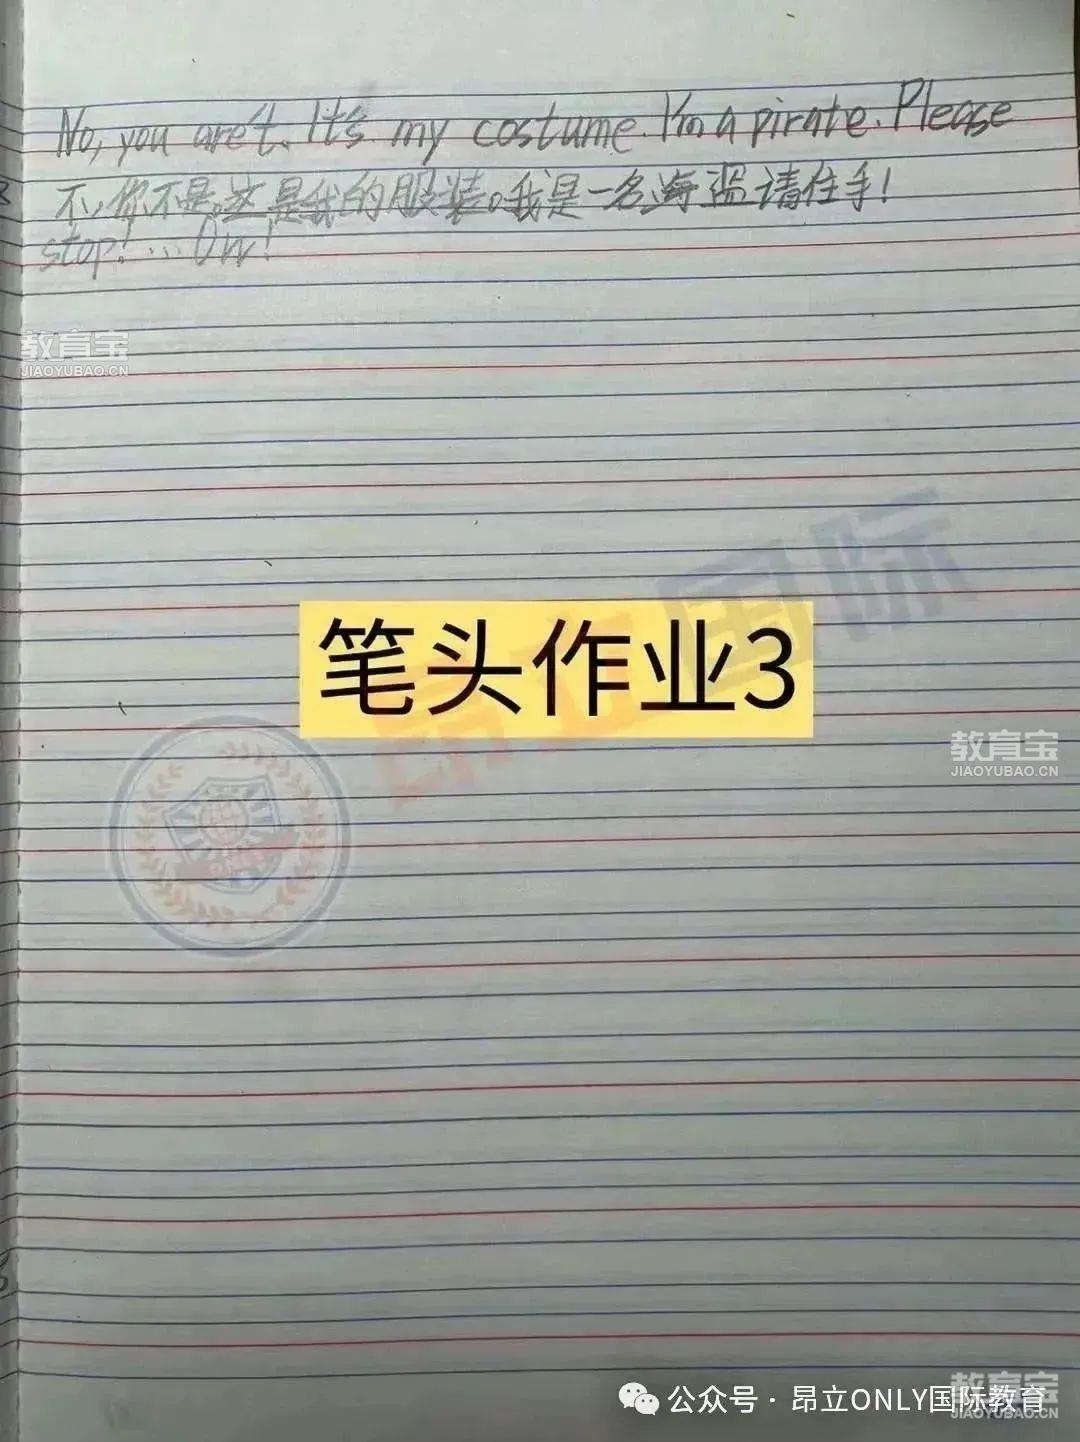 No, you are't. It's my costume. I'm a pirate. Please
不,你不是。这是我的服装。我是一名海盗请住手!
stop!... Ow!
教育宝
JIAOYUBAO.CN
国际
笔头作业3
昂立
教育宝
JIAOYUBAO.CN
公众号·昂立ONLY国际教育
教育宝
JIAOYUBAO.CN